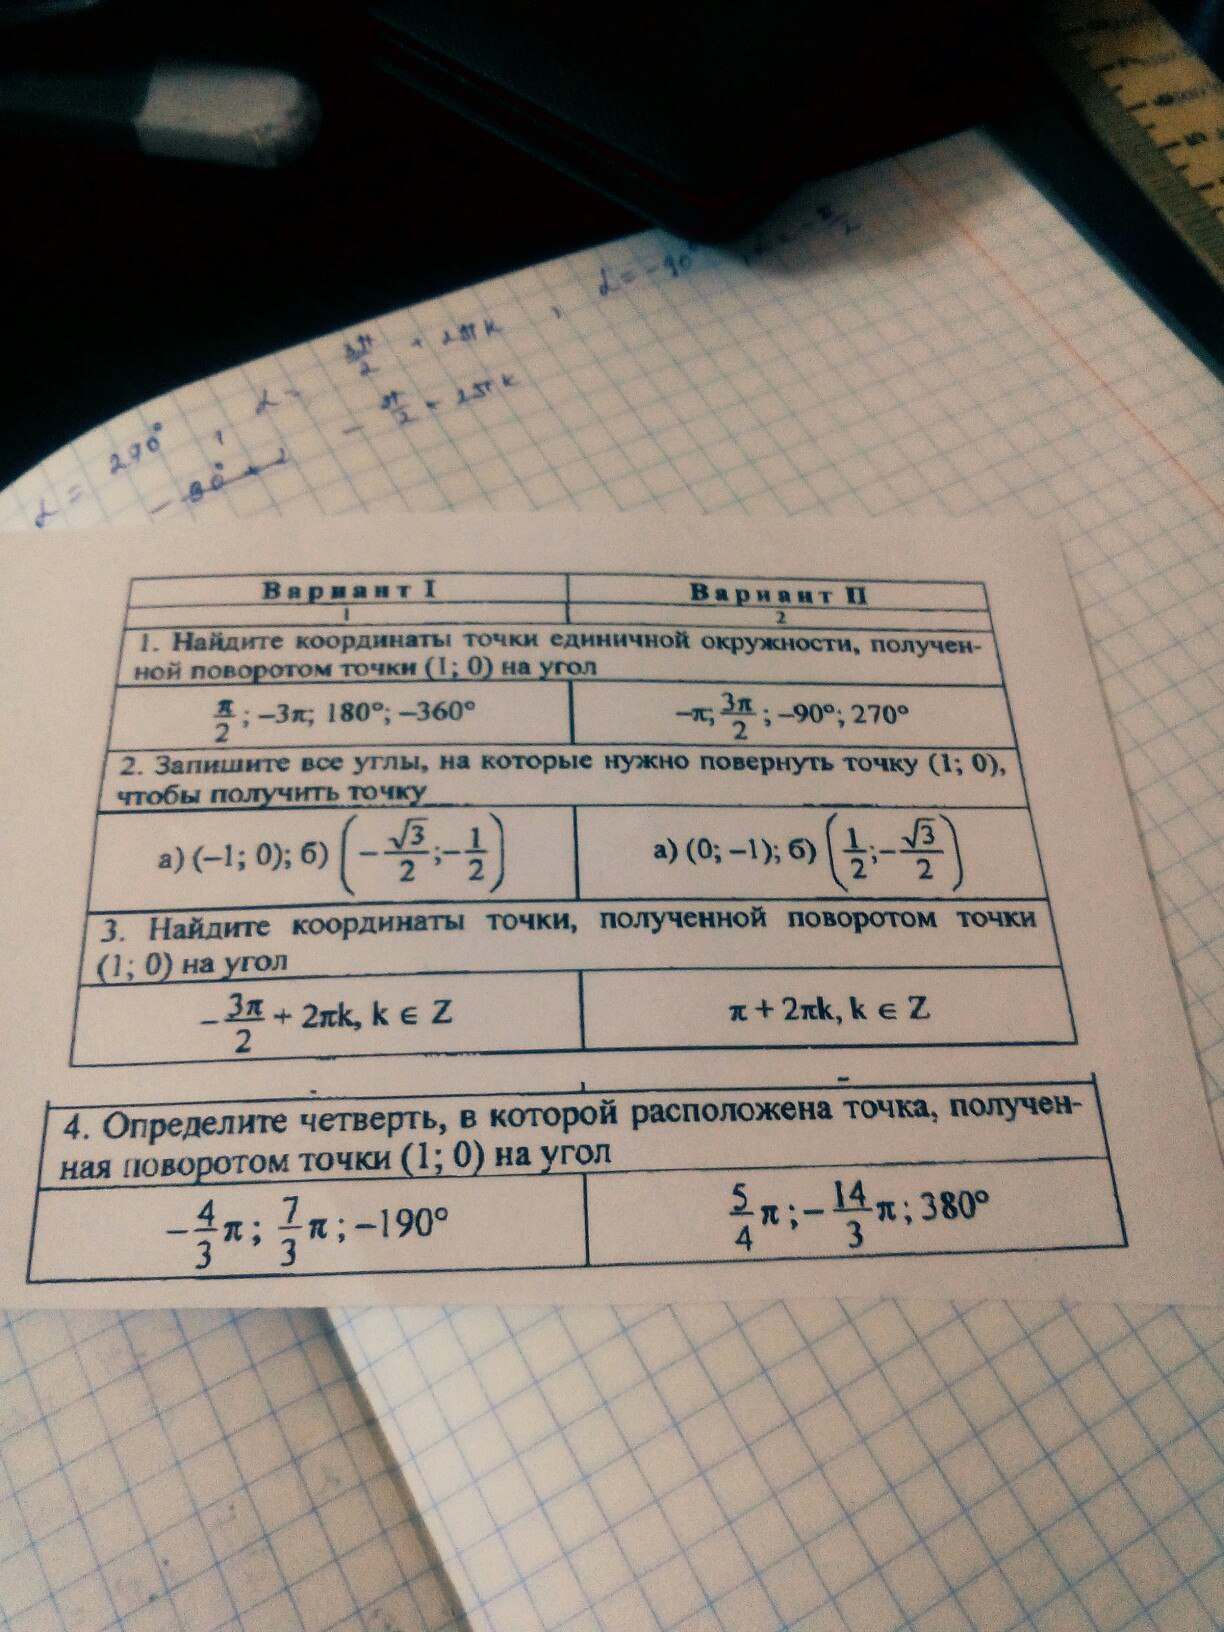 α = -90°
α = 270°, α = 3π/2 + 2πk,
- π/2 + 2πk
Вариант I Вариант II
1 2
1. Найдите координаты точки единичной окружности, получен-
ной поворотом точки (1; 0) на угол
π/2; –3π; 180°; –360° –π; 3π/2; –90°; 270°
2. Запишите все углы, на которые нужно повернуть точку (1; 0),
чтобы получить точку
а) (–1; 0); б) (–√3/2; –1/2) а) (0; –1); б) (1/2; –√3/2)
3. Найдите координаты точки, полученной поворотом точки
(1; 0) на угол
–3π/2 + 2πk, k ∈ Z π + 2πk, k ∈ Z
4. Определите четверть, в которой расположена точка, получен-
ная поворотом точки (1; 0) на угол
–4/3 π; 7/3 π; –190° 5/4 π; –14/3 π; 380°